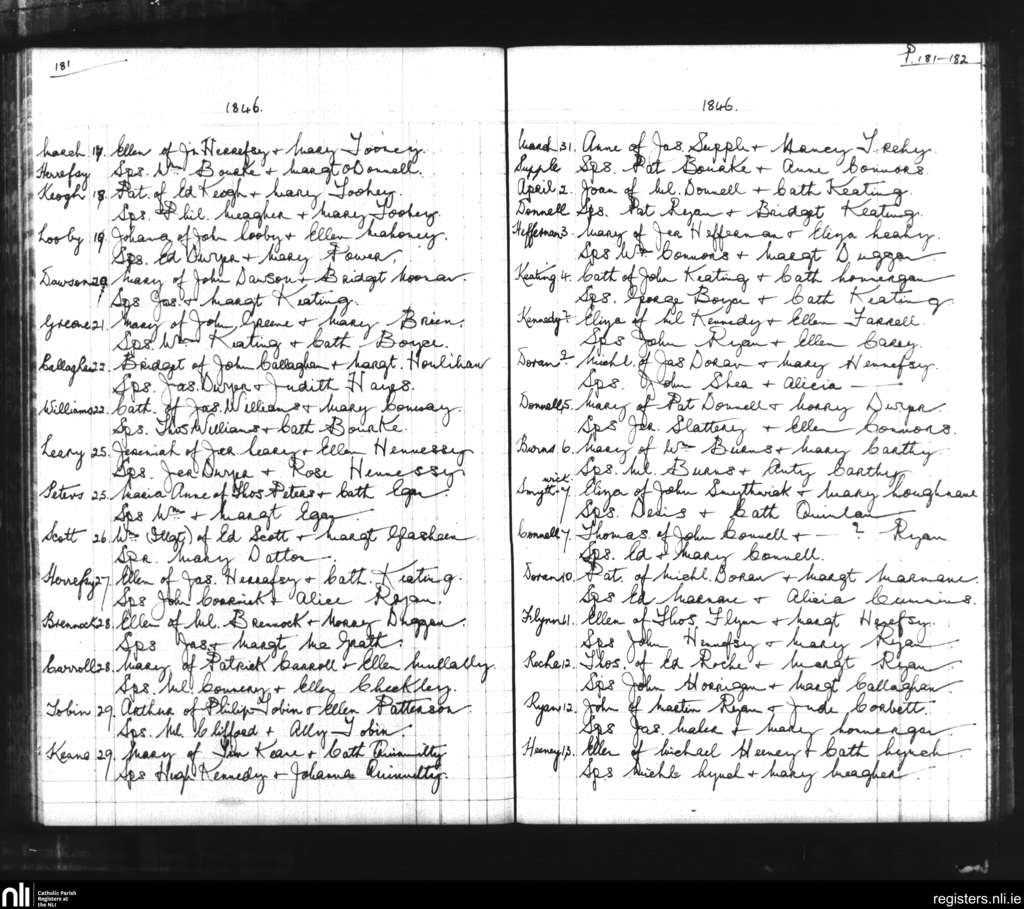 181
1846.
March 17. Ellen of Jn Hennefsy + Mary Tooney.
Hennefsy Sps. Wm Bourke + Margt O Donnell.
Keogh 18. Pat. of Ed Keogh + Mary Toohey.
Sps. Phil. Meagher + Mary Toohey.
Looby 19. Johana of John Looby + Ellen Mahoney.
Sps. Ed Dwyer + Mary Power.
Dawson 20. Mary of John Dawson + Bridgt Noonan
Sps Jas. + Margt Keating.
Greene 21. Mary of John Greene + Mary Brien.
Sps. Wm Keating + Cath. Boyer.
Callaghan 22. Bridgt of John Callaghan + Margt. Houlihan
Sps. Jas. Dwyer + Judith Hayes.
Williams 22. Cath. of Jas. Williams + Mary Conway.
Sps. Thos Williams + Cath Bourke.
Leary 25. Jeremiah of Jer Leary + Ellen Hennessy
Sps. Jer Dwyer + Rose Hennessy
Peters 25. Maria Anne of Thos. Peters + Cath Egan.
Sps Wm + Margt Egan
Scott 26. Wm (Illgt) of Ed Scott + Margt
Spr. Mary Dalton
Hennefsy 27. Ellen of Jas. Hennefsy + Cath. Keating.
Sps John Cormick + Alice Ryan.
Brennock 28. Ellen of Ml. Brennock + Norry Duggan.
Sps Jas + Margt Mc Grath.
Carroll 28. Mary of Patrick Carroll + Ellen Mullally
Sps. Ml. Connery + Ellen Checkley.
Tobin 29. Arthur of Philip Tobin + Ellen Patterson
Sps. Ml. Clifford + Ally Tobin
Keane 29. Mary of Tim Keane + Cath Quinnitty
Sps Hugh Kennedy + Johanna Quinnitty.
P. 181-182
1846.
March 31. Anne of Jas. Supple + Nancy Trehy.
Supple Sps. Pat Bourke + Anne Connors.
April 2. Joan of Ml. Donnell + Cath Keating.
Donnell Sps. Pat Ryan + Bridgt Keating.
Heffernan 3. Mary of Jer Heffernan + Eliza Leahy.
Sps Wm Connors + Margt Duggan
Keating 4. Cath of John Keating + Cath Lonnergan
Sps. George Boyer + Cath Keating.
Kennedy ? Eliza of Ml Kennedy + Ellen Farrell.
Sps John Ryan + Ellen Carey.
Doran ? Michl. of Jas Doran + Mary Hennefsy.
Sps. John Shea + Alicia —
Donnell 5. Mary of Pat Donnell + Norry Dwyer.
Sps Jer. Slattery + Ellen Connors.
Burns 6. Mary of Wm Burns + Mary Carthy
Sps. Ml. Burns + Anty Carthy.
Smythwick 7. Eliza of John Smythwick + Mary Loughnane
Sps. Denis + Cath Quinlan
Connell 7. Thomas of John Connell + — ? Ryan
Sps. Ed + Mary Connell.
Doran 10. Pat. of Michl. Doran + Margt Marnane.
Sps Ed Marnane + Alicia Cummins.
Flynn 11. Ellen of Thos. Flynn + Margt Henefsy.
Sps John Hennefsy + Mary Ryan
Roche 12. Thos. of Ed Roche + Margt Ryan
Sps John Horrigan + Margt Callaghan.
Ryan 12. John of Martin Ryan + Jude Corbett.
Sps Jas. Maher + Mary Lonergan
Heeney 13. Ellen of Michael Heeney + Cath Lynch
Sps Michl Lynch + Mary Meagher
nli
Catholic Parish
Registers at
the NLI
registers.nli.ie